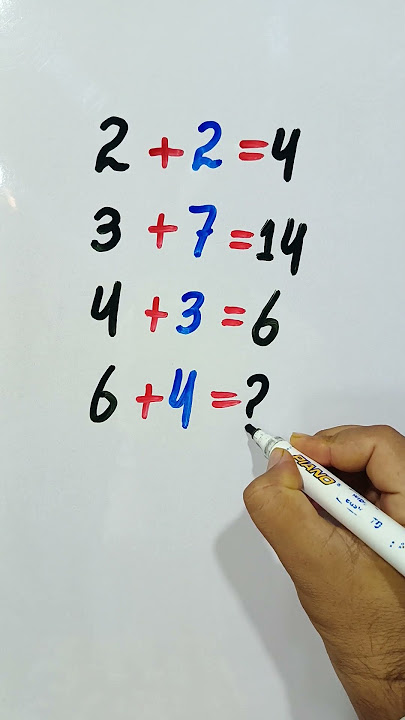 2 + 2 = 4
3 + 7 = 14
4 + 3 = 6
6 + 4 = ?
PIANO